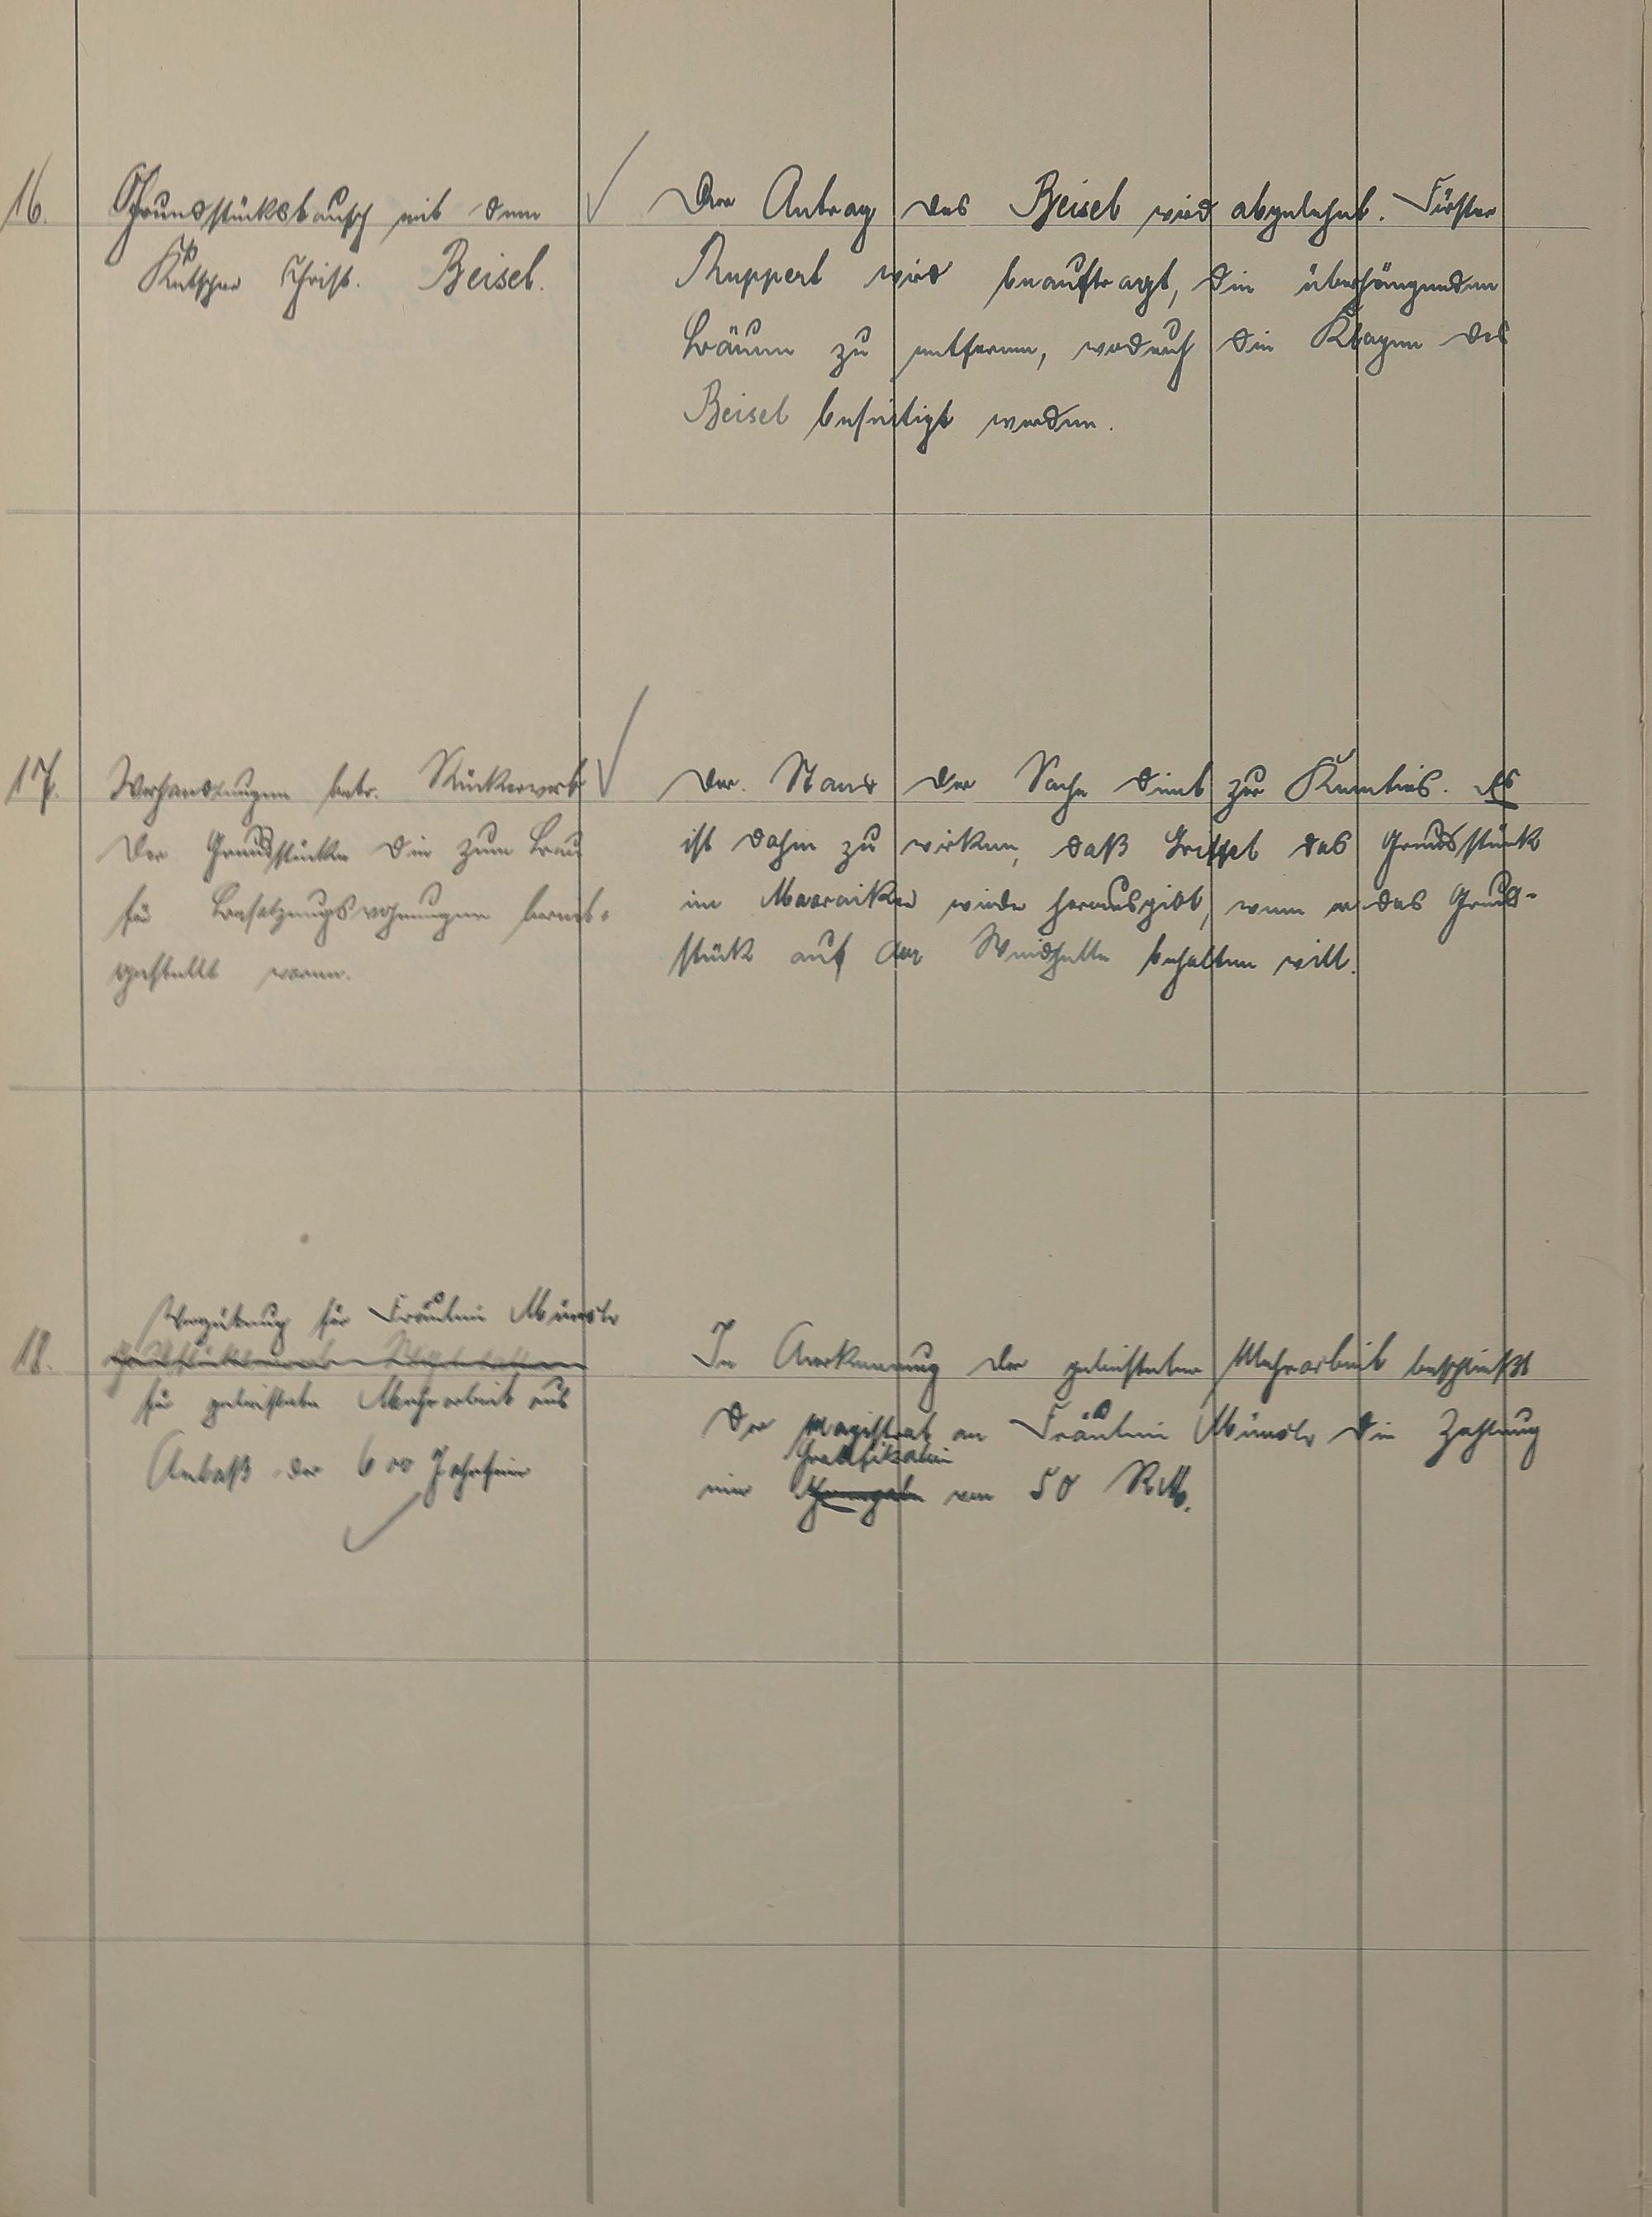 16.
Grundstückstausch mit dem
Kutscher Christ. Beisel.
Der Antrag des Beisel wird abgelehnt. Förster
Ruppert wird beauftragt, die überhängenden
Bäume zu entfernen, wodurch die Klagen des
Beisel beseitigt werden.
17.
Verhandlungen betr. Rückerwerb
der Grundstücke die zum Bau
für Besatzungswohnungen bereit-
gestellt waren.
Der Stand der Sache dient zur Kenntnis. Es
ist dahin zu wirken, daß das Grundstück
im wieder herausgibt, wenn er das Grund-
stück auf der behalten will.
18.
Vergütung für Fräulein Münster
für geleistete Mehrarbeit aus
Anlaß der 600 Jahrfeier
In Anerkennung der geleisteten Mehrarbeit beschließt
der Magistrat an Fräulein Münster die Zahlung
Gratifikation
einer von 50 RM.